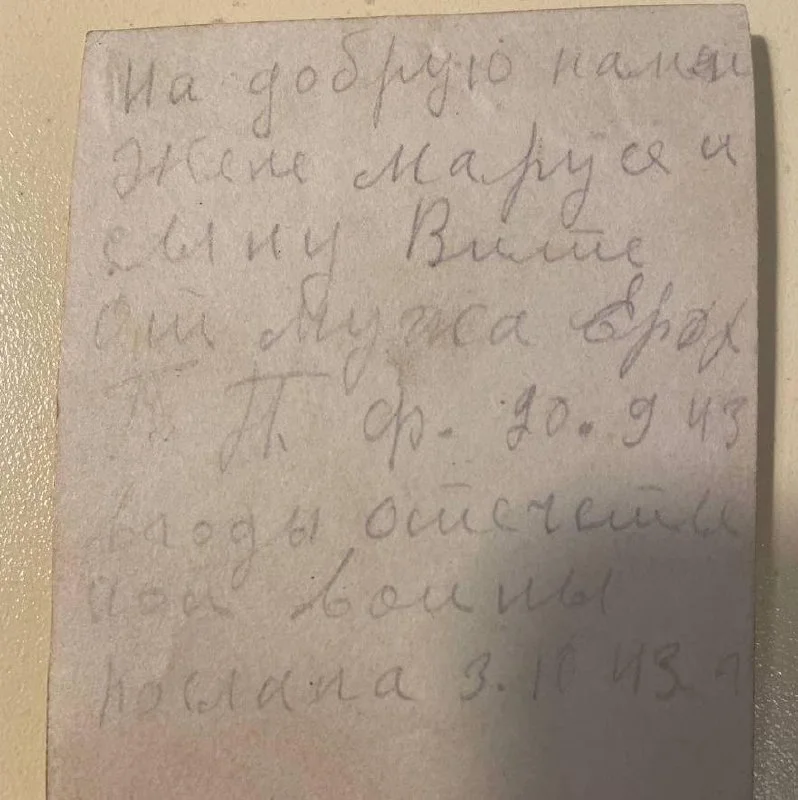 На добрую памяи
Жене Марусе и
сыну Вите
от Мужа Ерох
П. ф. 20.9 43
вгоды отечеств
ной воины
послана 3.10 43 г